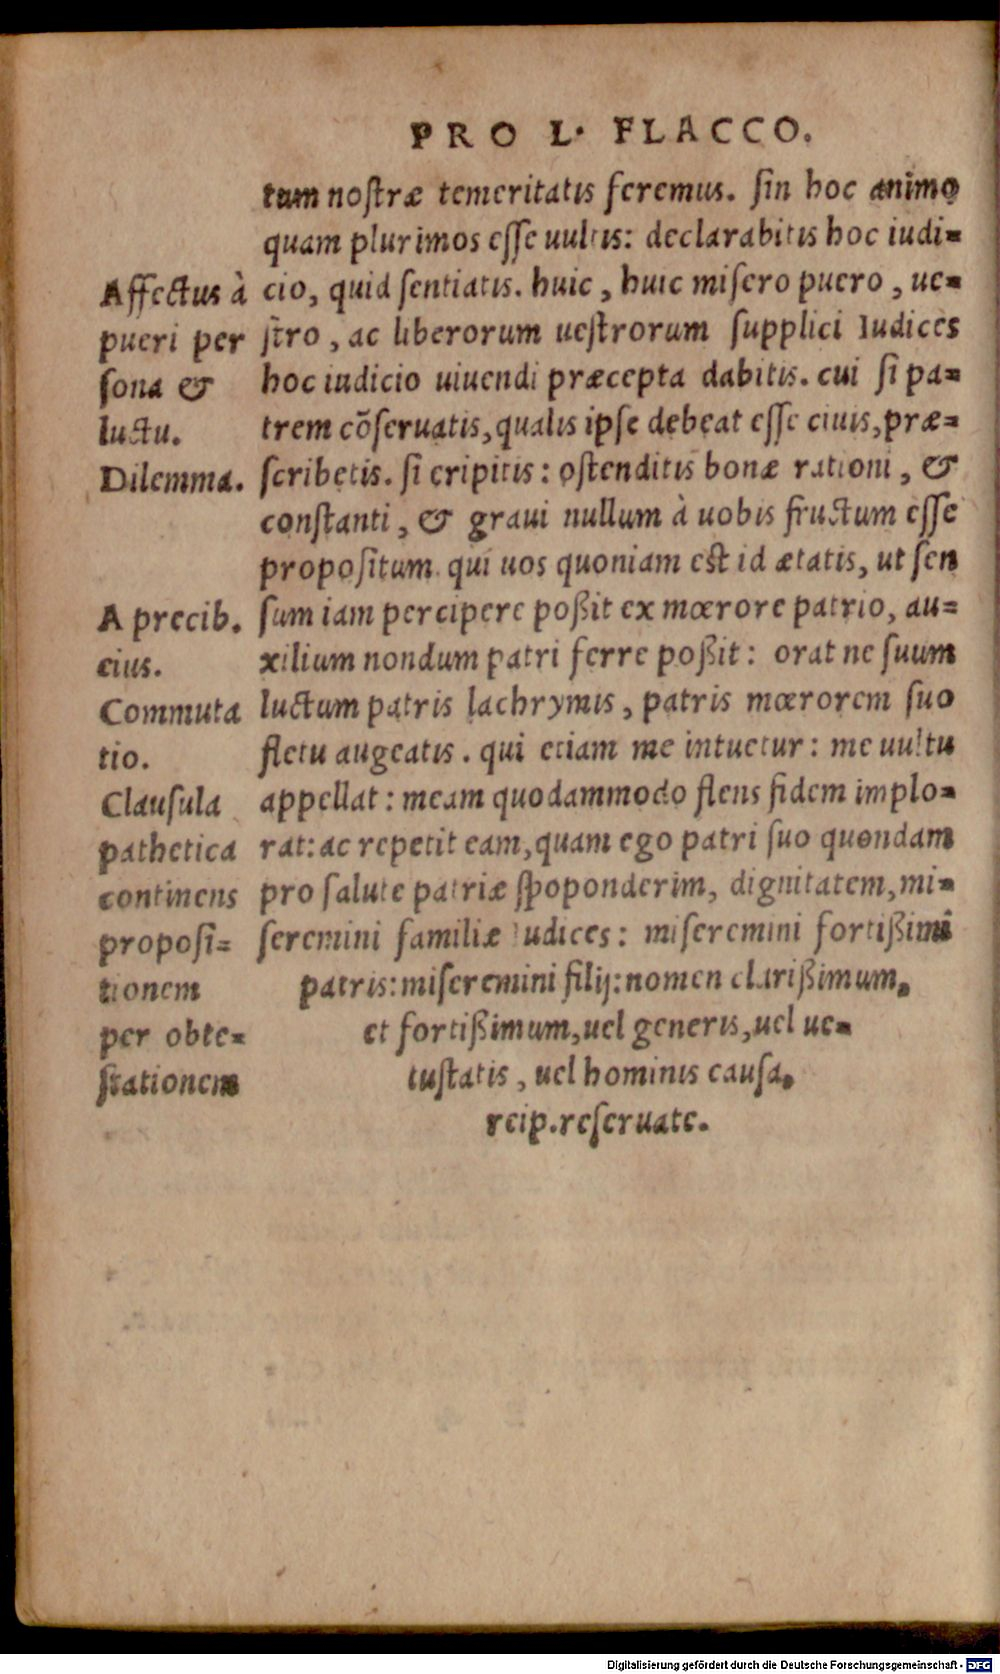 PRO L. FLACCO.
tum nostræ temeritatis feremus. sin hoc animo
quam plurimos esse uultis: declarabitis hoc iudi=
cio, quid sentiatis. huic, huic misero puero, ue=
stro, ac liberorum uestrorum supplici Iudices
hoc iudicio uiuendi præcepta dabitis. cui si pa=
trem cõseruatis, qualis ipse debeat esse ciuis, præ=
scribetis. si eripitis: ostenditis bonæ rationi, &
constanti, & graui nullum à uobis fructum esse
propositum. qui uos quoniam est id ætatis, ut sen
sum iam percipere poßit ex mœrore patrio, au=
xilium nondum patri ferre poßit: orat ne suum
luctum patris lachrymis, patris mœrorem suo
fletu augeatis. qui etiam me intuetur: me uultu
appellat: meam quodammodo flens fidem implo=
rat: ac repetit eam, quam ego patri suo quondam
pro salute patriæ spoponderim, dignitatem, mi=
seremini familiæ Iudices: miseremini fortißimi
patris: miseremini filij: nomen clarißimum,
et fortißimum, uel generis, uel ue=
tustatis, uel hominis causa,
reip. reseruate.
Affectus à
pueri per
sona &
luctu.
Dilemma.
A precib.
eius.
Commuta
tio.
Clausula
pathetica
continens
proposi=
tionem
per obte=
stationem
Digitalisierung gefördert durch die Deutsche Forschungsgemeinschaft - DFG